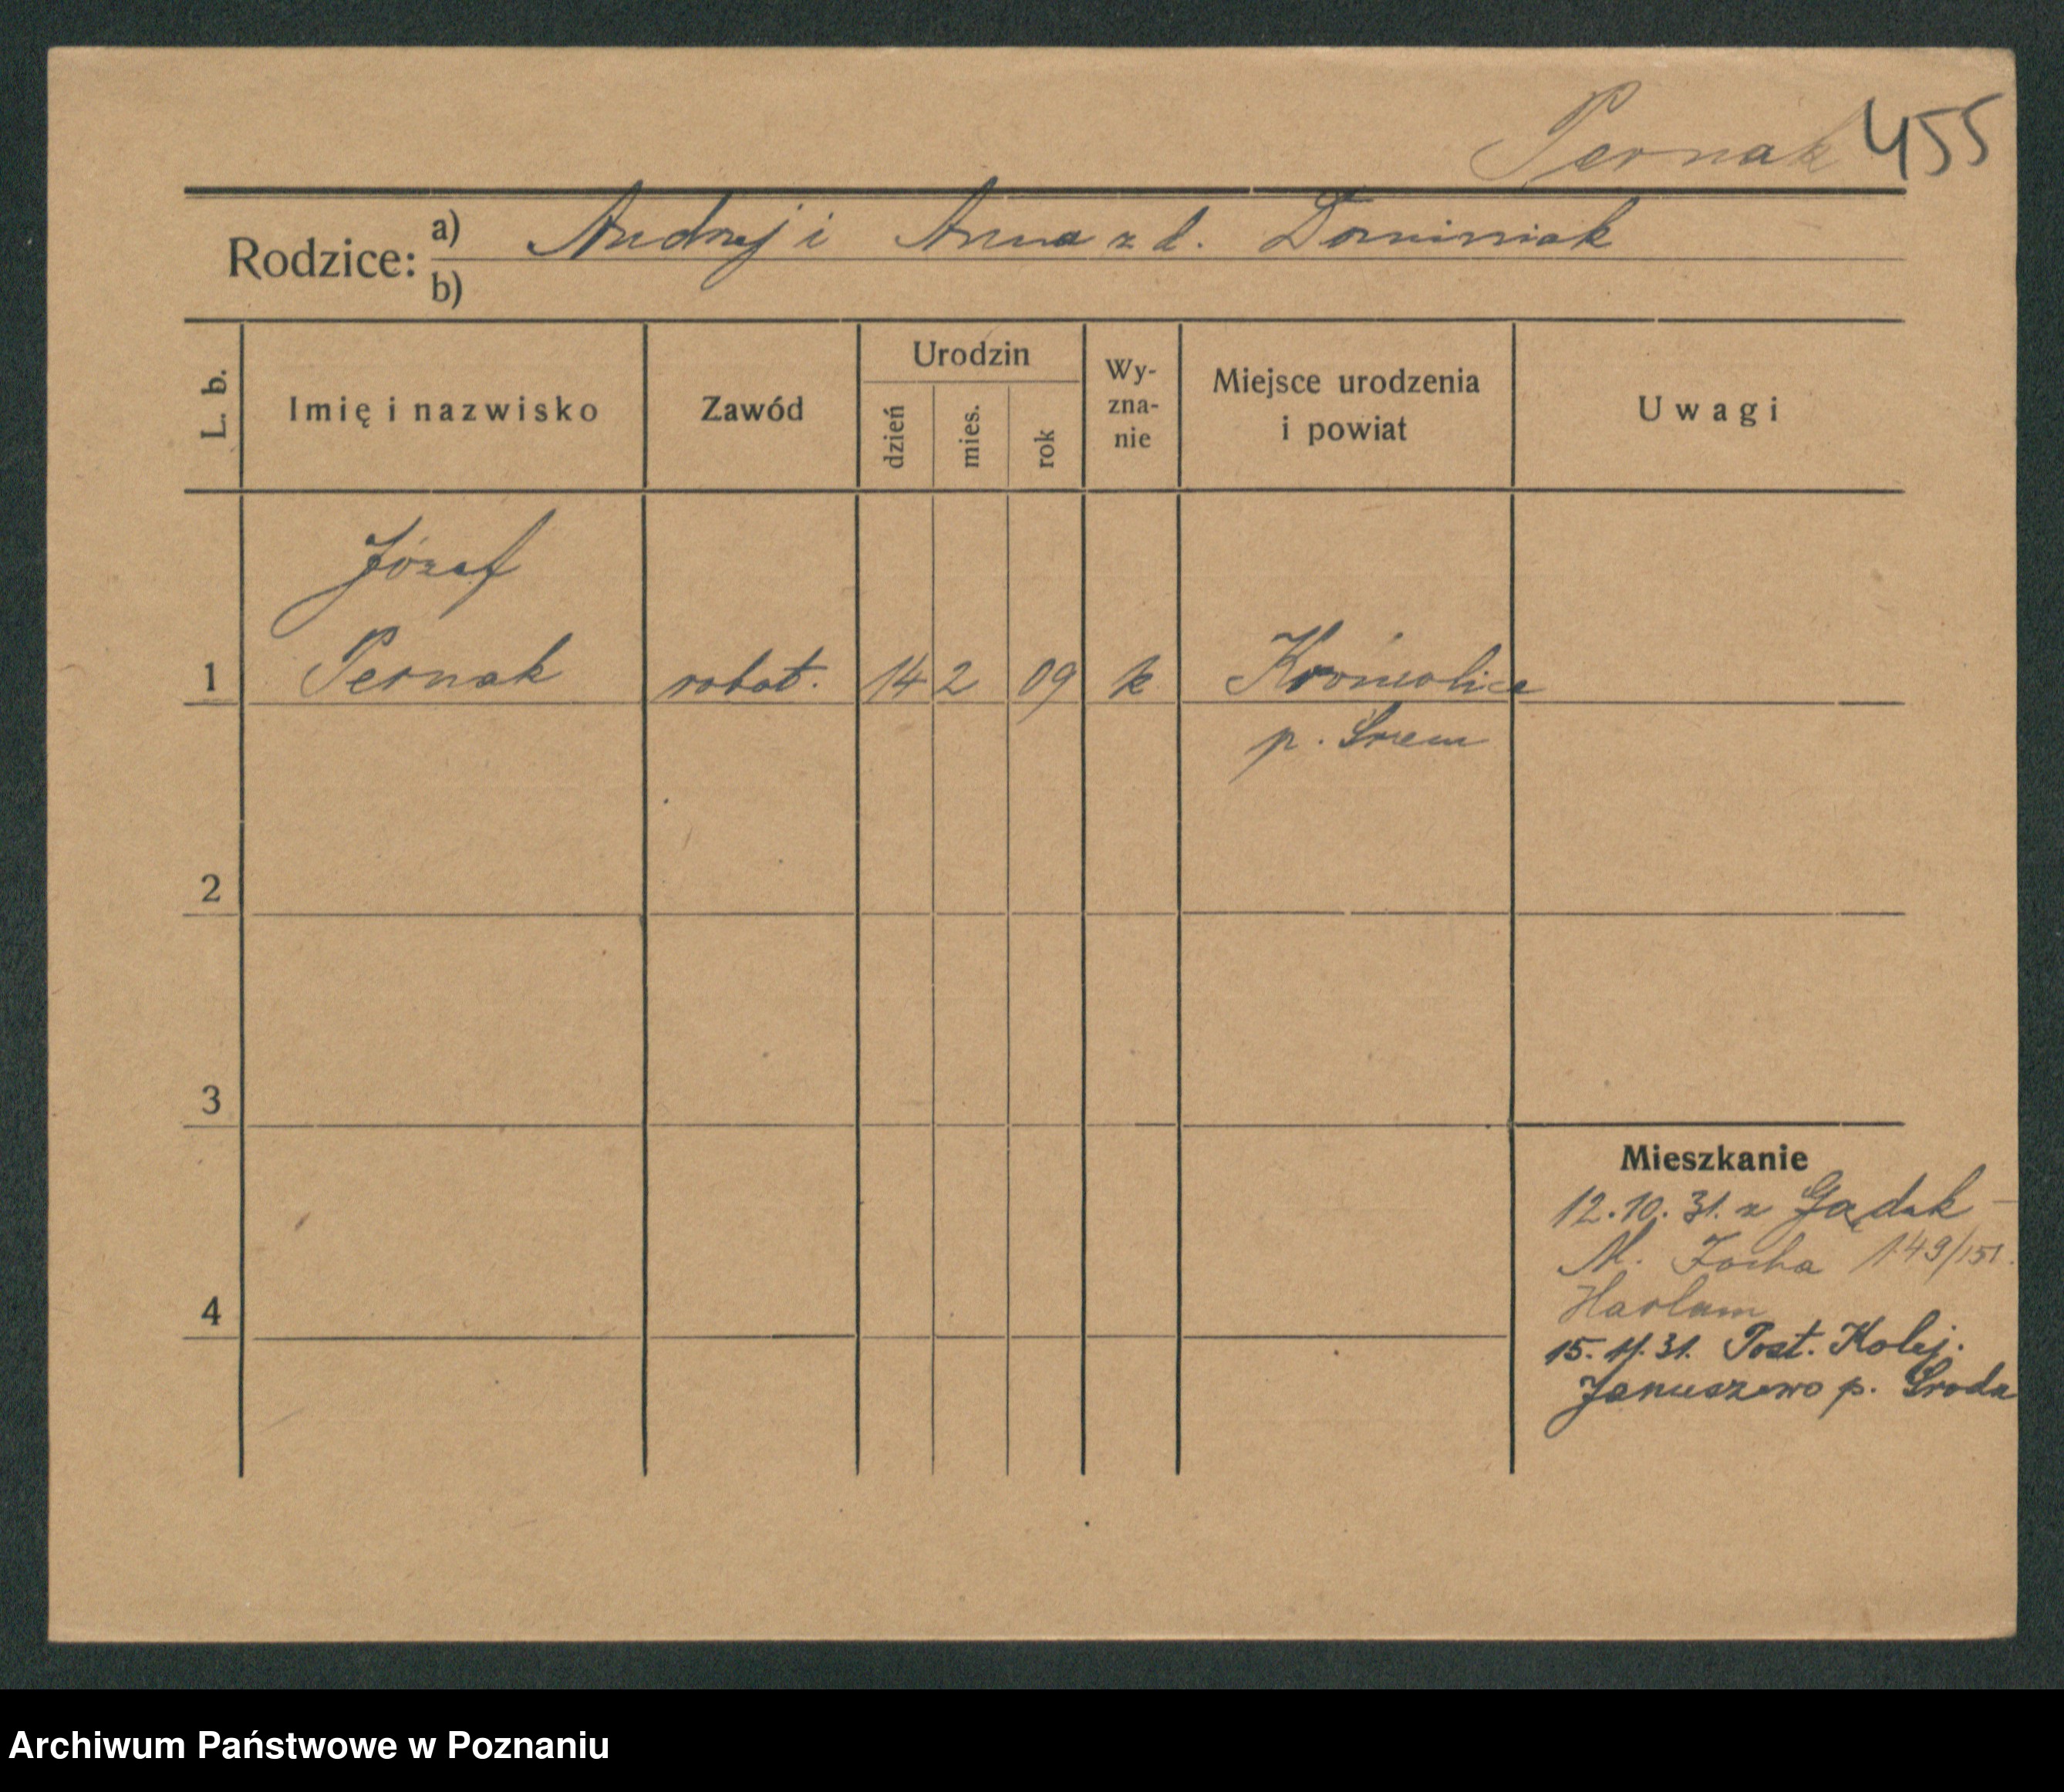 Pernak 455
Rodzice: a) Andrzej i Anna z d. Dominiak
b)
L. b. Imię i nazwisko Zawód Urodzin dzień mies. rok Wy-zna-nie Miejsce urodzenia i powiat Uwagi
Józef
1 Pernak robot. 14 2 09 k Kromolice
p. Śrem
2
3
Mieszkanie
12.10.31. z Gądek
M. Focha 149/151.
4 Harlam
15.11.31. Post. Kolej.
Januszewo p. Środa
Archiwum Państwowe w Poznaniu